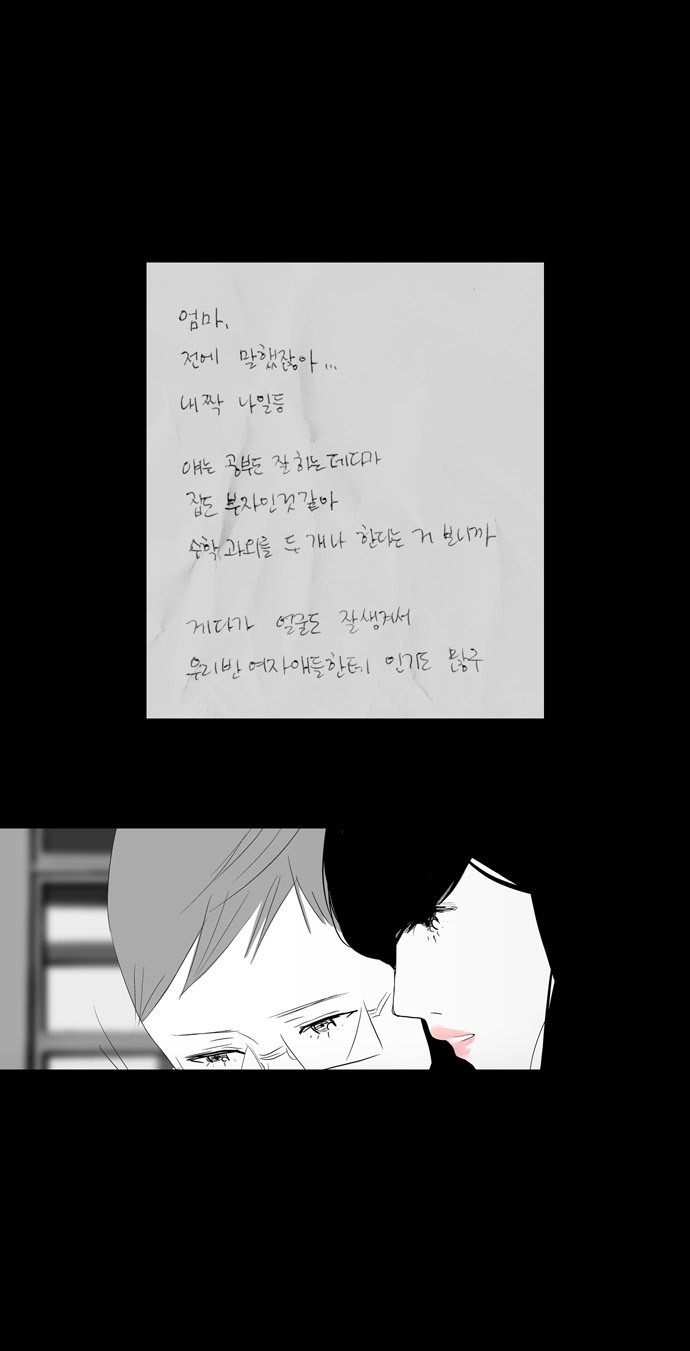 엄마,
전에 말했잖아...
내 짝 나일등
얘는 공부도 잘하는데다가
집도 부자인것 같아
수학 과외를 두 개나 한다는 거 보니까
게다가 얼굴도 잘생겨서
우리반 여자애들한테 인기도 많구